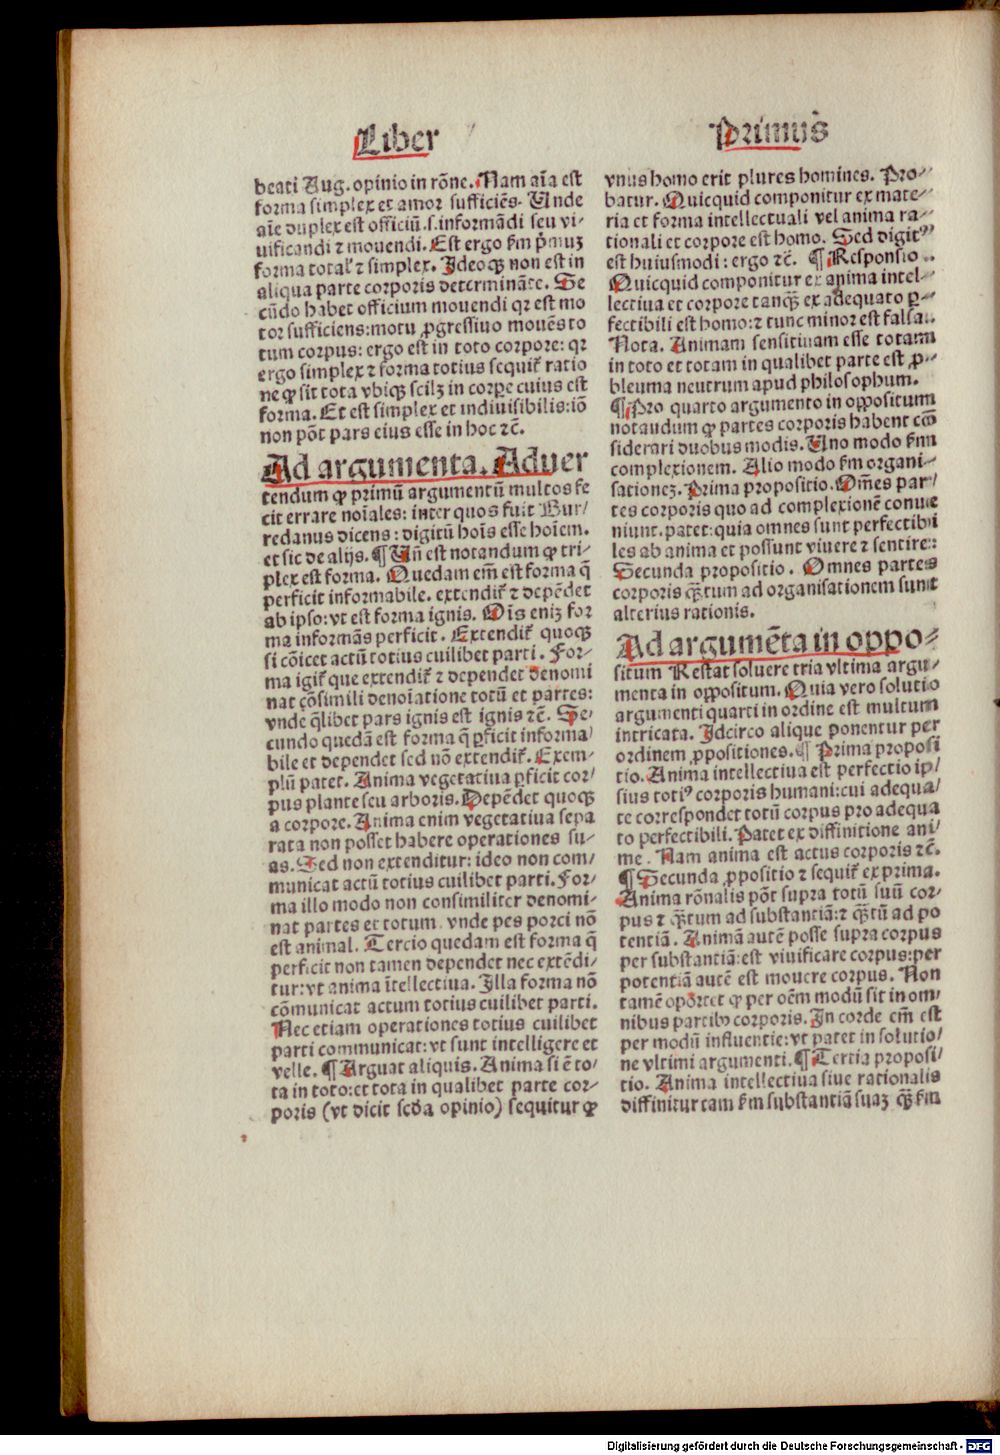 Liber
Primus
beati Aug. opinio in rōne. Nam aīa est
forma simplex et amor sufficiēs. Unde
aīe duplex est officiū .s. informādi seu vi-
uificandi ⁊ mouendi. Est ergo ẜm pͥmuz
forma total' ⁊ simplex. Ideoqꝫ non est in
aliqua parte corporis determināte. Se
cūdo habet officium mouendi qꝛ est mo
tor sufficiens: motu ꝓgressiuo mouēs to
tum corpus: ergo est in toto corpore: qꝛ
ergo simplex ⁊ forma totius sequit᷑ ratio
ne ꝙ sit tota vbiqꝫ scilꝫ in corpe cuius est
forma. Et est simplex et indiuisibilis: iō
non pōt pars eius esse in hoc ⁊c̄.
Ad argumenta. Aduer
tendum ꝙ primū argumentū multos fe
cit errare noīales: inter quos fuit Bur/
redanus dicens: digitū hoīs esse hoīem.
et sic de alijs. ¶ Un̄ est notandum ꝙ tri-
plex est forma. Quedam em̄ est forma q̄
perficit informabile. extendit᷑ ⁊ depēdet
ab ipso: vt est forma ignis. Oīs eniꝫ for
ma informās perficit. Extendit᷑ quoqꝫ
si cōicet actū totius cuilibet parti. For-
ma igit᷑ que extendit᷑ ⁊ dependet denomi
nat cōsimili denoīatione totū et partes:
vnde q̄libet pars ignis est ignis ⁊c̄. Se/
cundo quedā est forma q̄ ꝑficit informa/
bile et dependet sed nō extendit᷑. Exem-
plū patet. Anima vegetatiua ꝑficit cor/
pus plante seu arboris. Depēdet quoqꝫ
a corpore. Anima enim vegetatiua sepa
rata non posset habere operationes su-
as. Sed non extenditur: ideo non com/
municat actū totius cuilibet parti. For-
ma illo modo non consimiliter denomi-
nat partes et totum. vnde pes porci nō
est animal. Tercio quedam est forma q̄
perficit non tamen dependet nec extēdi-
tur: vt anima ītellectiua. Illa forma nō
cōmunicat actum totius cuilibet parti.
Nec etiam operationes totius cuilibet
parti communicat: vt sunt intelligere et
velle. ¶ Arguat aliquis. Anima si ē to-
ta in toto: et tota in qualibet parte cor-
poris (vt dicit scđa opinio) sequitur ꝙ
vnus homo erit plures homines. Pro-
batur. Quicquid componitur ex mate-
ria et forma intellectuali vel anima ra-
tionali et corpore est homo. Sed digitꝰ
est huiusmodi: ergo ⁊c̄. ¶ Responsio.
Quicquid componitur ex anima intel-
lectiua et corpore tanqꝫ ex adequato ꝑ-
fectibili est homo: ⁊ tunc minor est falsa.
Nota. Animam sensitiuam esse totam
in toto et totam in qualibet parte est ꝓ-
bleuma neutrum apud philosophum.
¶ Pro quarto argumento in oppositum
notandum ꝙ partes corporis habent cō
siderari duobus modis. Uno modo ẜm
complexionem. Alio modo ẜm organi-
sationeꝫ. Prima propositio. Om̄es par/
tes corporis quo ad complexionē conue
niunt. patet: quia omnes sunt perfectibi
les ab anima et possunt viuere ⁊ sentire:
Secunda propositio. Omnes partes
corporis qꝫtum ad organisationem sunt
alterius rationis.
Ad argumēta in oppo-
situm Restat soluere tria vltima argu/
menta in oppositum. Quia vero solutio
argumenti quarti in ordine est multum
intricata. Idcirco alique ponentur per
ordinem ꝓpositiones. ¶ Prima proposi
tio. Anima intellectiua est perfectio ip/
sius totiꝰ corporis humani: cui adequa/
te correspondet totū corpus pro adequa
to perfectibili. Patet ex diffinitione ani/
me. Nam anima est actus corporis ⁊c̄.
¶ Secunda ꝓpositio ⁊ sequit᷑ ex prima.
Anima rōnalis pōt supra totū suū cor-
pus ⁊ qꝫtum ad substantiā: ⁊ qꝫtū ad po
tentiā. Animā autē posse supra corpus
per substantiā: est viuificare corpus: per
potentiā autē est mouere corpus. Non
tamē oportet ꝙ per oēm modū sit in om/
nibus partibꝰ corporis. In corde em̄ est
per modū influentie: vt patet in solutio/
ne vltimi argumenti. ¶ Tertia proposi/
tio. Anima intellectiua siue rationalis
diffinitur tam ẜm substantiā suaꝫ qꝫ ẜm
Digitalisierung gefördert durch die Deutsche Forschungsgemeinschaft - DFG